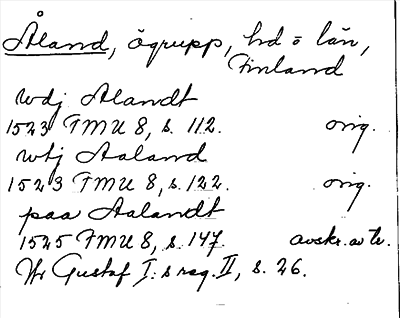 Åland, ögrupp, hd o län,
Finland
wdj Alandt
1523 FMU 8, s. 112. orig.
wtj Aaland
1523 FMU 8, s. 122. orig.
paa Aalandt
1525 FMU 8, s. 147. avskr. av tr.
Hr Gustaf I:s reg. II, s. 26.